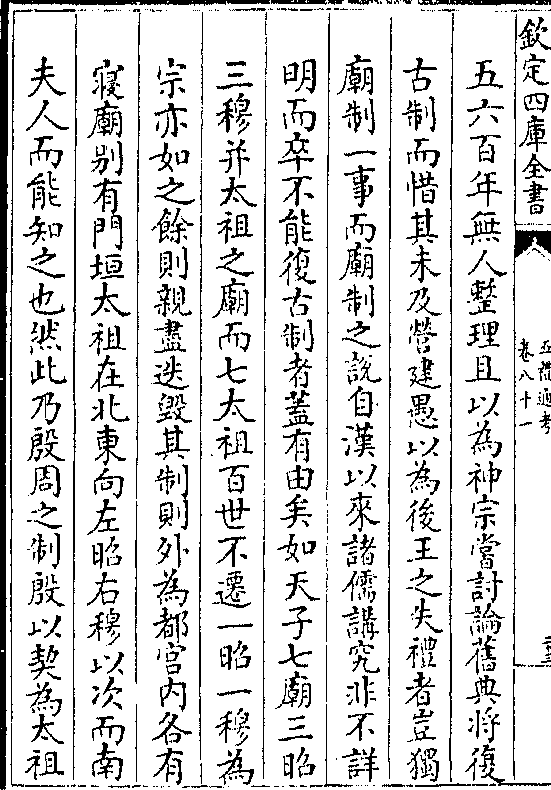 欽定四庫全書
五禮通考
卷八十一
五六百年無人整理且以為神宗嘗討論舊典將復
古制而惜其未及營建愚以為後王之失禮者豈獨
廟制一事而廟制之說自漢以來諸儒講究非不詳
明而卒不能復古制者蓋有由矣如天子七廟三昭
三穆并太祖之廟而七太祖百世不遷一昭一穆為
宗亦如之餘則親盡迭毀其制則外為都宮内各有
寢廟别有門垣太祖在北東向左昭右穆以次而南
夫人而能知之也然此乃殷周之制殷以契為太祖